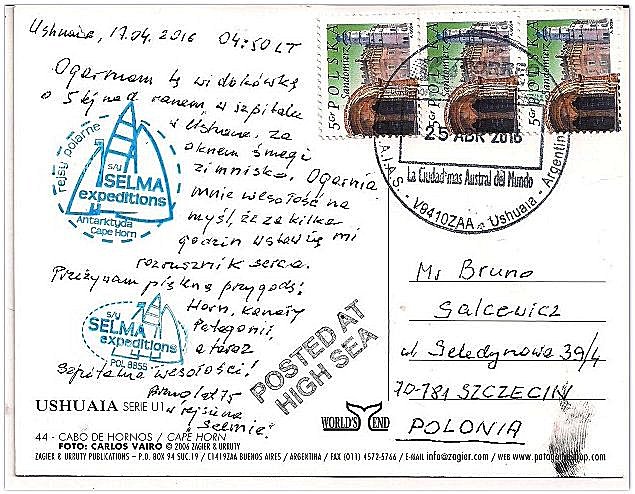 Ushuaia, 17.04.2016 04:50 LT
Ogarniam tę widokówkę
o 5tej nad ranem, w szpitalu
w Ushuaia, za
oknem śniegi
zimnisko. Ogarnia
mnie wesołość na
myśl, że za kilka
godzin wstawią mi
rozrusznik serca.
Przeżywam piękną przygodę:
Horn, kanały
Patagonii,
a teraz
szpitalne wesołości!
lat 75
w rejsie na
"Selmie".
rejsy polarne
s/y
SELMA
expeditions
Antarktyda
Cape Horn
s/y
SELMA
expeditions
POL 8855
POSTED AT
HIGH SEA
POLSKA
Sandomierz
5gr
POLSKA
5gr
POLSKA
5gr
25 ABR 2016
La Ciudad mas Austral del Mundo
V9410ZAA - Ushuaia - Argentina
Mr Bruno
Salcewicz
ul. Seledynowa 39/4
70-781 SZCZECIN
POLONIA
USHUAIA SERIE U1
WORLD'S END
44 - CABO DE HORNOS / CAPE HORN
FOTO: CARLOS VAIRO © 2006 ZAGIER & URRUTY
ZAGIER & URRUTY PUBLICATIONS – P.O. BOX 94 SUC.19 / C1419ZAA BUENOS AIRES / ARGENTINA / FAX (011) 4572-5766 / E-MAIL info@zagier.com / WEB www.patagoniashop.com